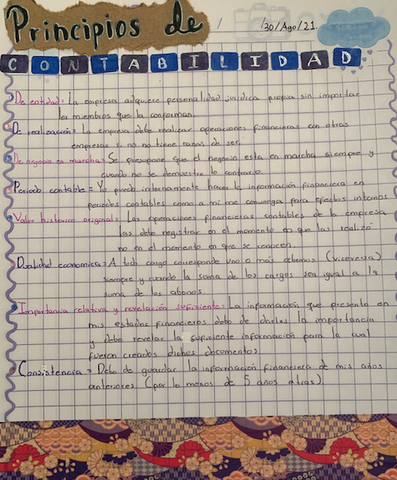 Principios de
/ /30/Ago/21.
CONTABILIDAD
De entidad: La empresa adquiere personalidad jurídica propia sin importar
los miembros que la conforman.
De realización: La empresa debe realizar operaciones financieras con otras
empresas si no no tiene razón de ser.
De negocio en marcha: Se presupone que el negocio esta en marcha siempre y
cuando no se demuestre lo contrario.
Periodo contable = Yo puedo internamente hacer la información financiera en
periodos contables como a mi me convenga para efectos internos
Valor histórico original: Las operaciones financieras contables de la empresa
las debe registrar en el momento en que las realizó
no en el momento en que se conocen.
Dualidad económica = A todo cargo corresponde uno o más abonos (viceversa)
siempre y cuando la suma de los cargos sea igual a la
suma de los abonos
Importancia relativa y revelación suficiente: La información que presenta en
mis estados financieros debo de darles la importancia
y debe revelar la suficiente información para la cual
fueron creados dichos documentos
Consistencia = Debo de guardar la información financiera de mis años
anteriores (por lo menos de 5 años atras)